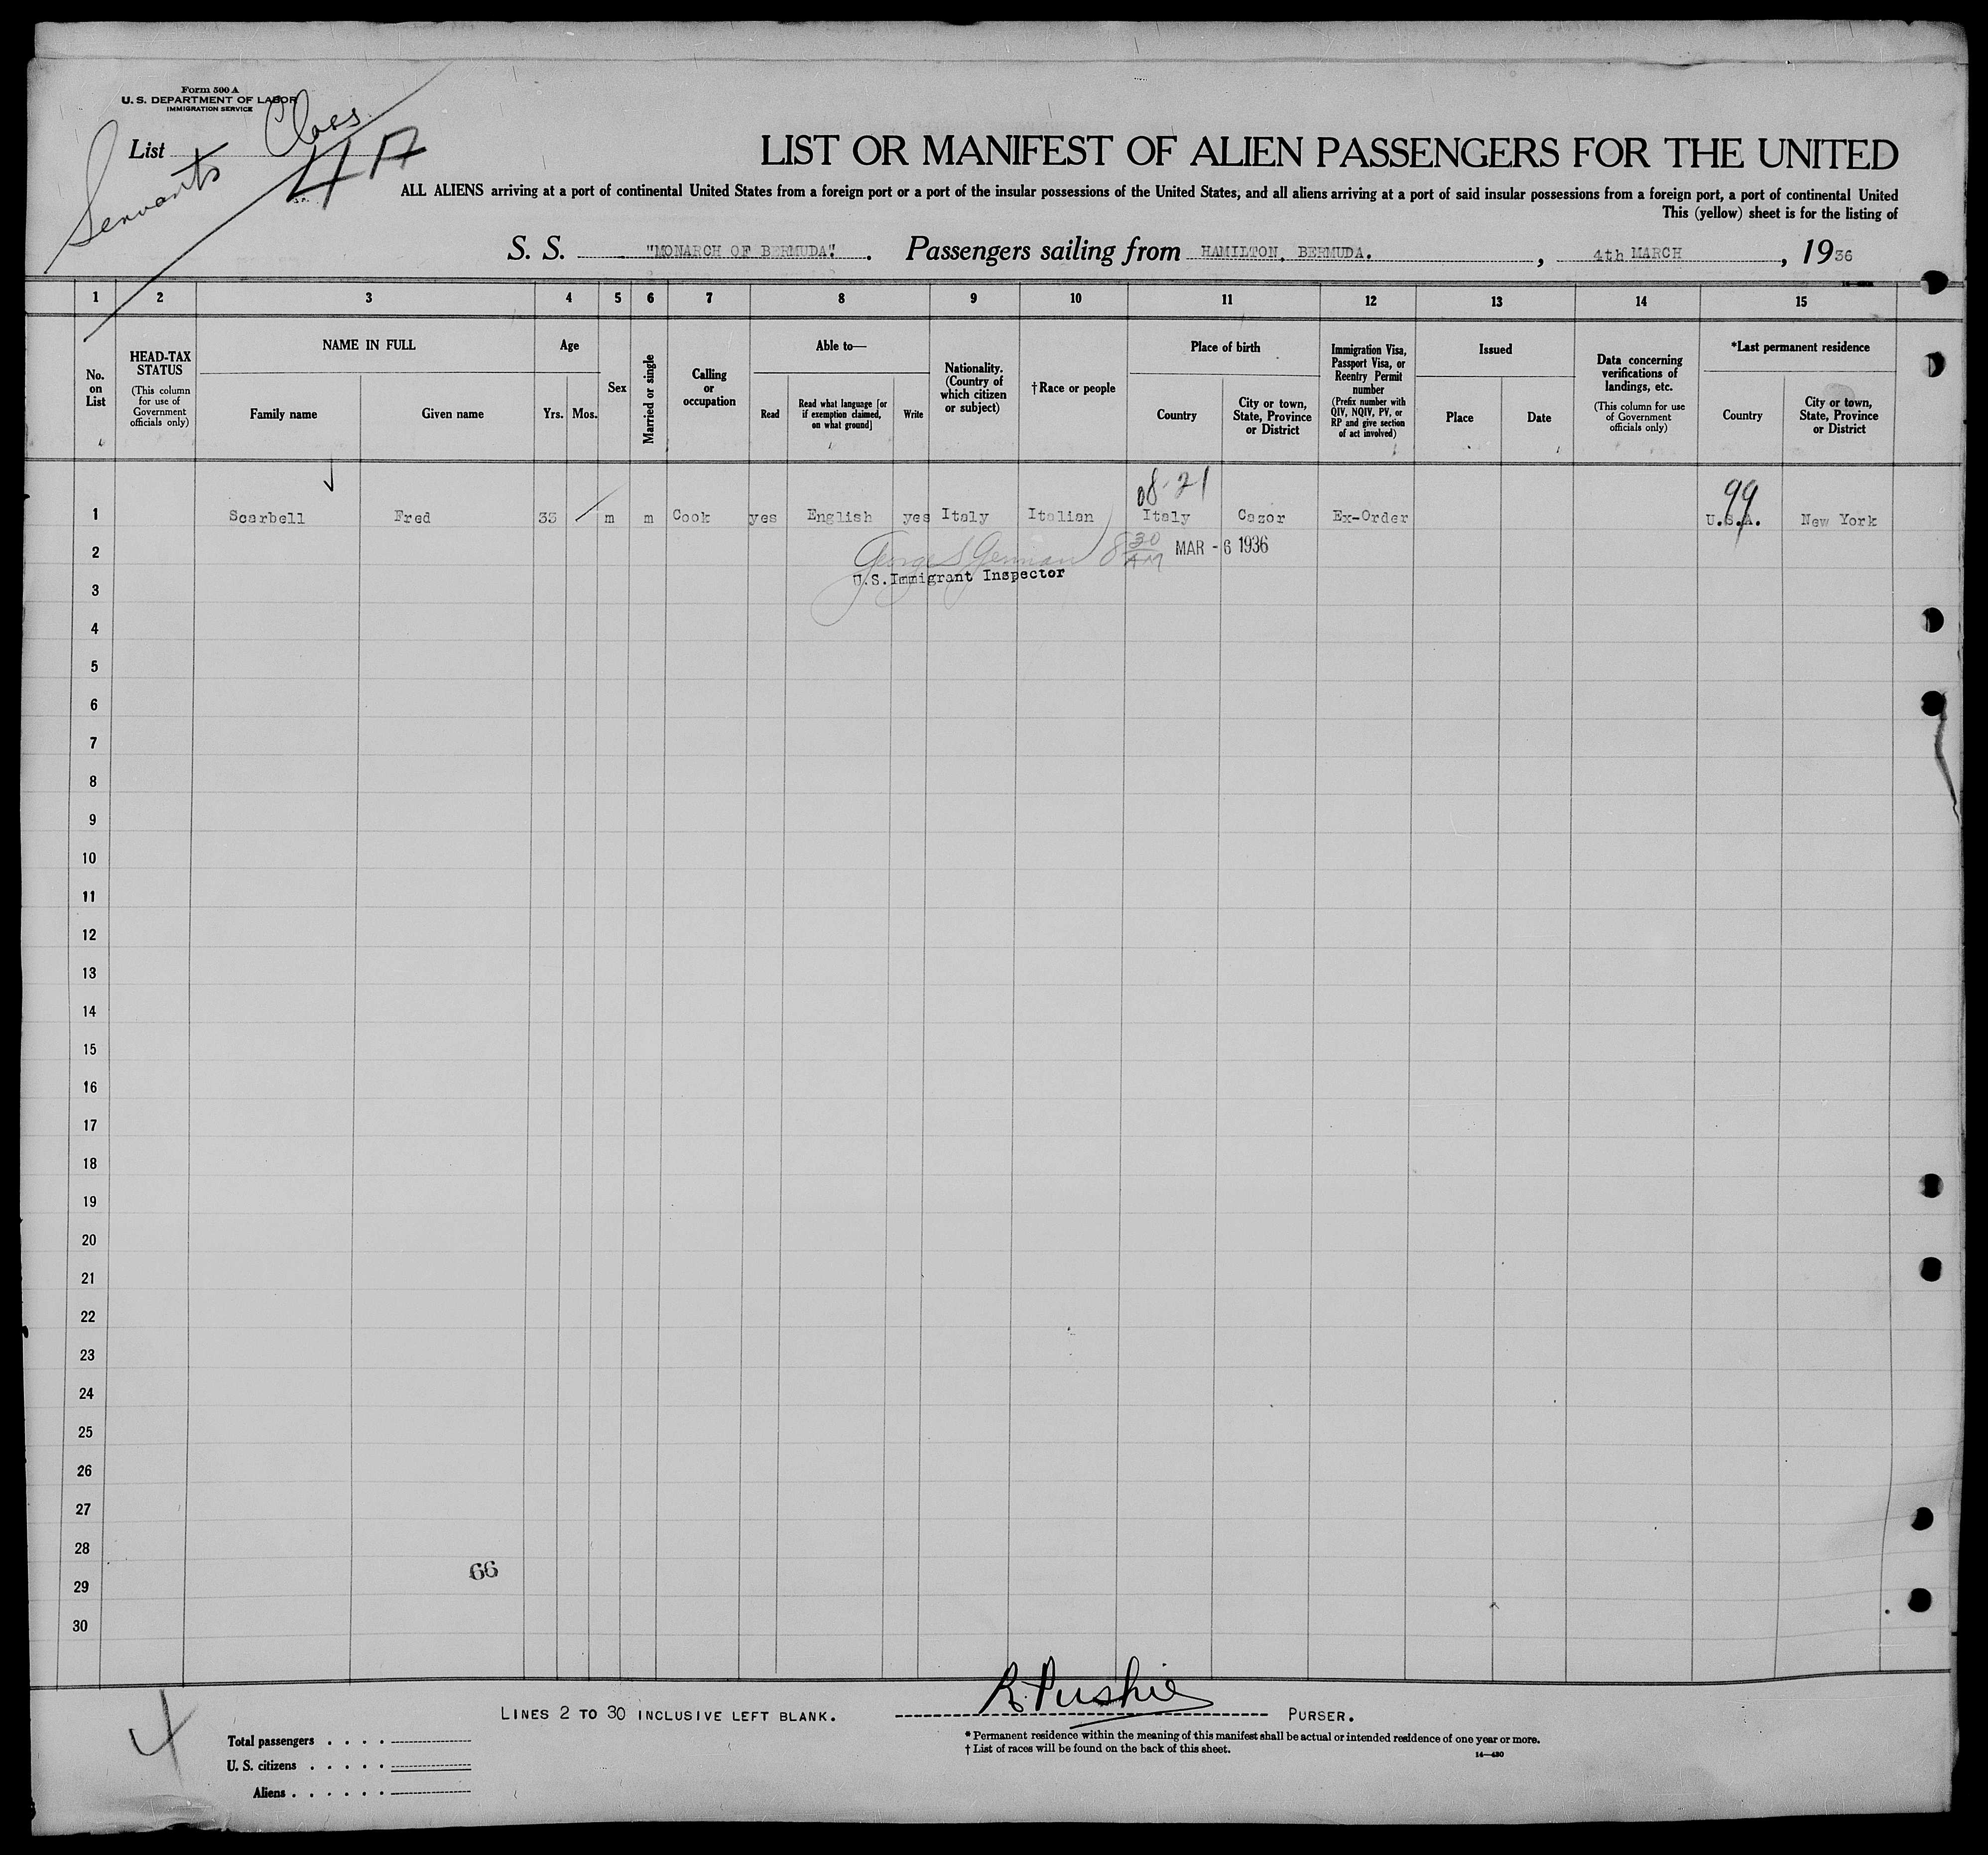 Form 500 A
U. S. DEPARTMENT OF LABOR
IMMIGRATION SERVICE
List
Servants Class
4A
LIST OR MANIFEST OF ALIEN PASSENGERS FOR THE UNITED
ALL ALIENS arriving at a port of continental United States from a foreign port or a port of the insular possessions of the United States, and all aliens arriving at a port of said insular possessions from a foreign port, a port of continental United
This (yellow) sheet is for the listing of
S. S. "MONARCH OF BERMUDA". Passengers sailing from HAMILTON, BERMUDA. , 4th MARCH , 1936
1 2 3 4 5 6 7 8 9 10 11 12 13 14 15
No. on List
HEAD-TAX STATUS (This column for use of Government officials only)
NAME IN FULL
Family name Given name
Age
Yrs. Mos.
Sex
Married or single
Calling or occupation
Able to—
Read
Read what language [or if exemption claimed, on what ground]
Write
Nationality. (Country of which citizen or subject)
†Race or people
Place of birth
Country
City or town, State, Province or District
Immigration Visa, Passport Visa, or Reentry Permit number (Prefix number with QIV, NQIV, PV, or RP and give section of act involved)
Issued
Place Date
Data concerning verifications of landings, etc. (This column for use of Government officials only)
*Last permanent residence
Country
City or town, State, Province or District
08-21 99
1 Scarbell Fred 33 m m Cook yes English yes Italy Italian Italy Cazor Ex-Order U.S.A. New York
2 8 30 AM MAR - 6 1936
U.S.Immigrant Inspector
3
4
5
6
7
8
9
10
11
12
13
14
15
16
17
18
19
20
21
22
23
24
25
26
27
28
66
29
30
R. Pushie
LINES 2 TO 30 INCLUSIVE LEFT BLANK. PURSER.
4
Total passengers
U. S. citizens
Aliens
* Permanent residence within the meaning of this manifest shall be actual or intended residence of one year or more.
† List of races will be found on the back of this sheet.
14—430